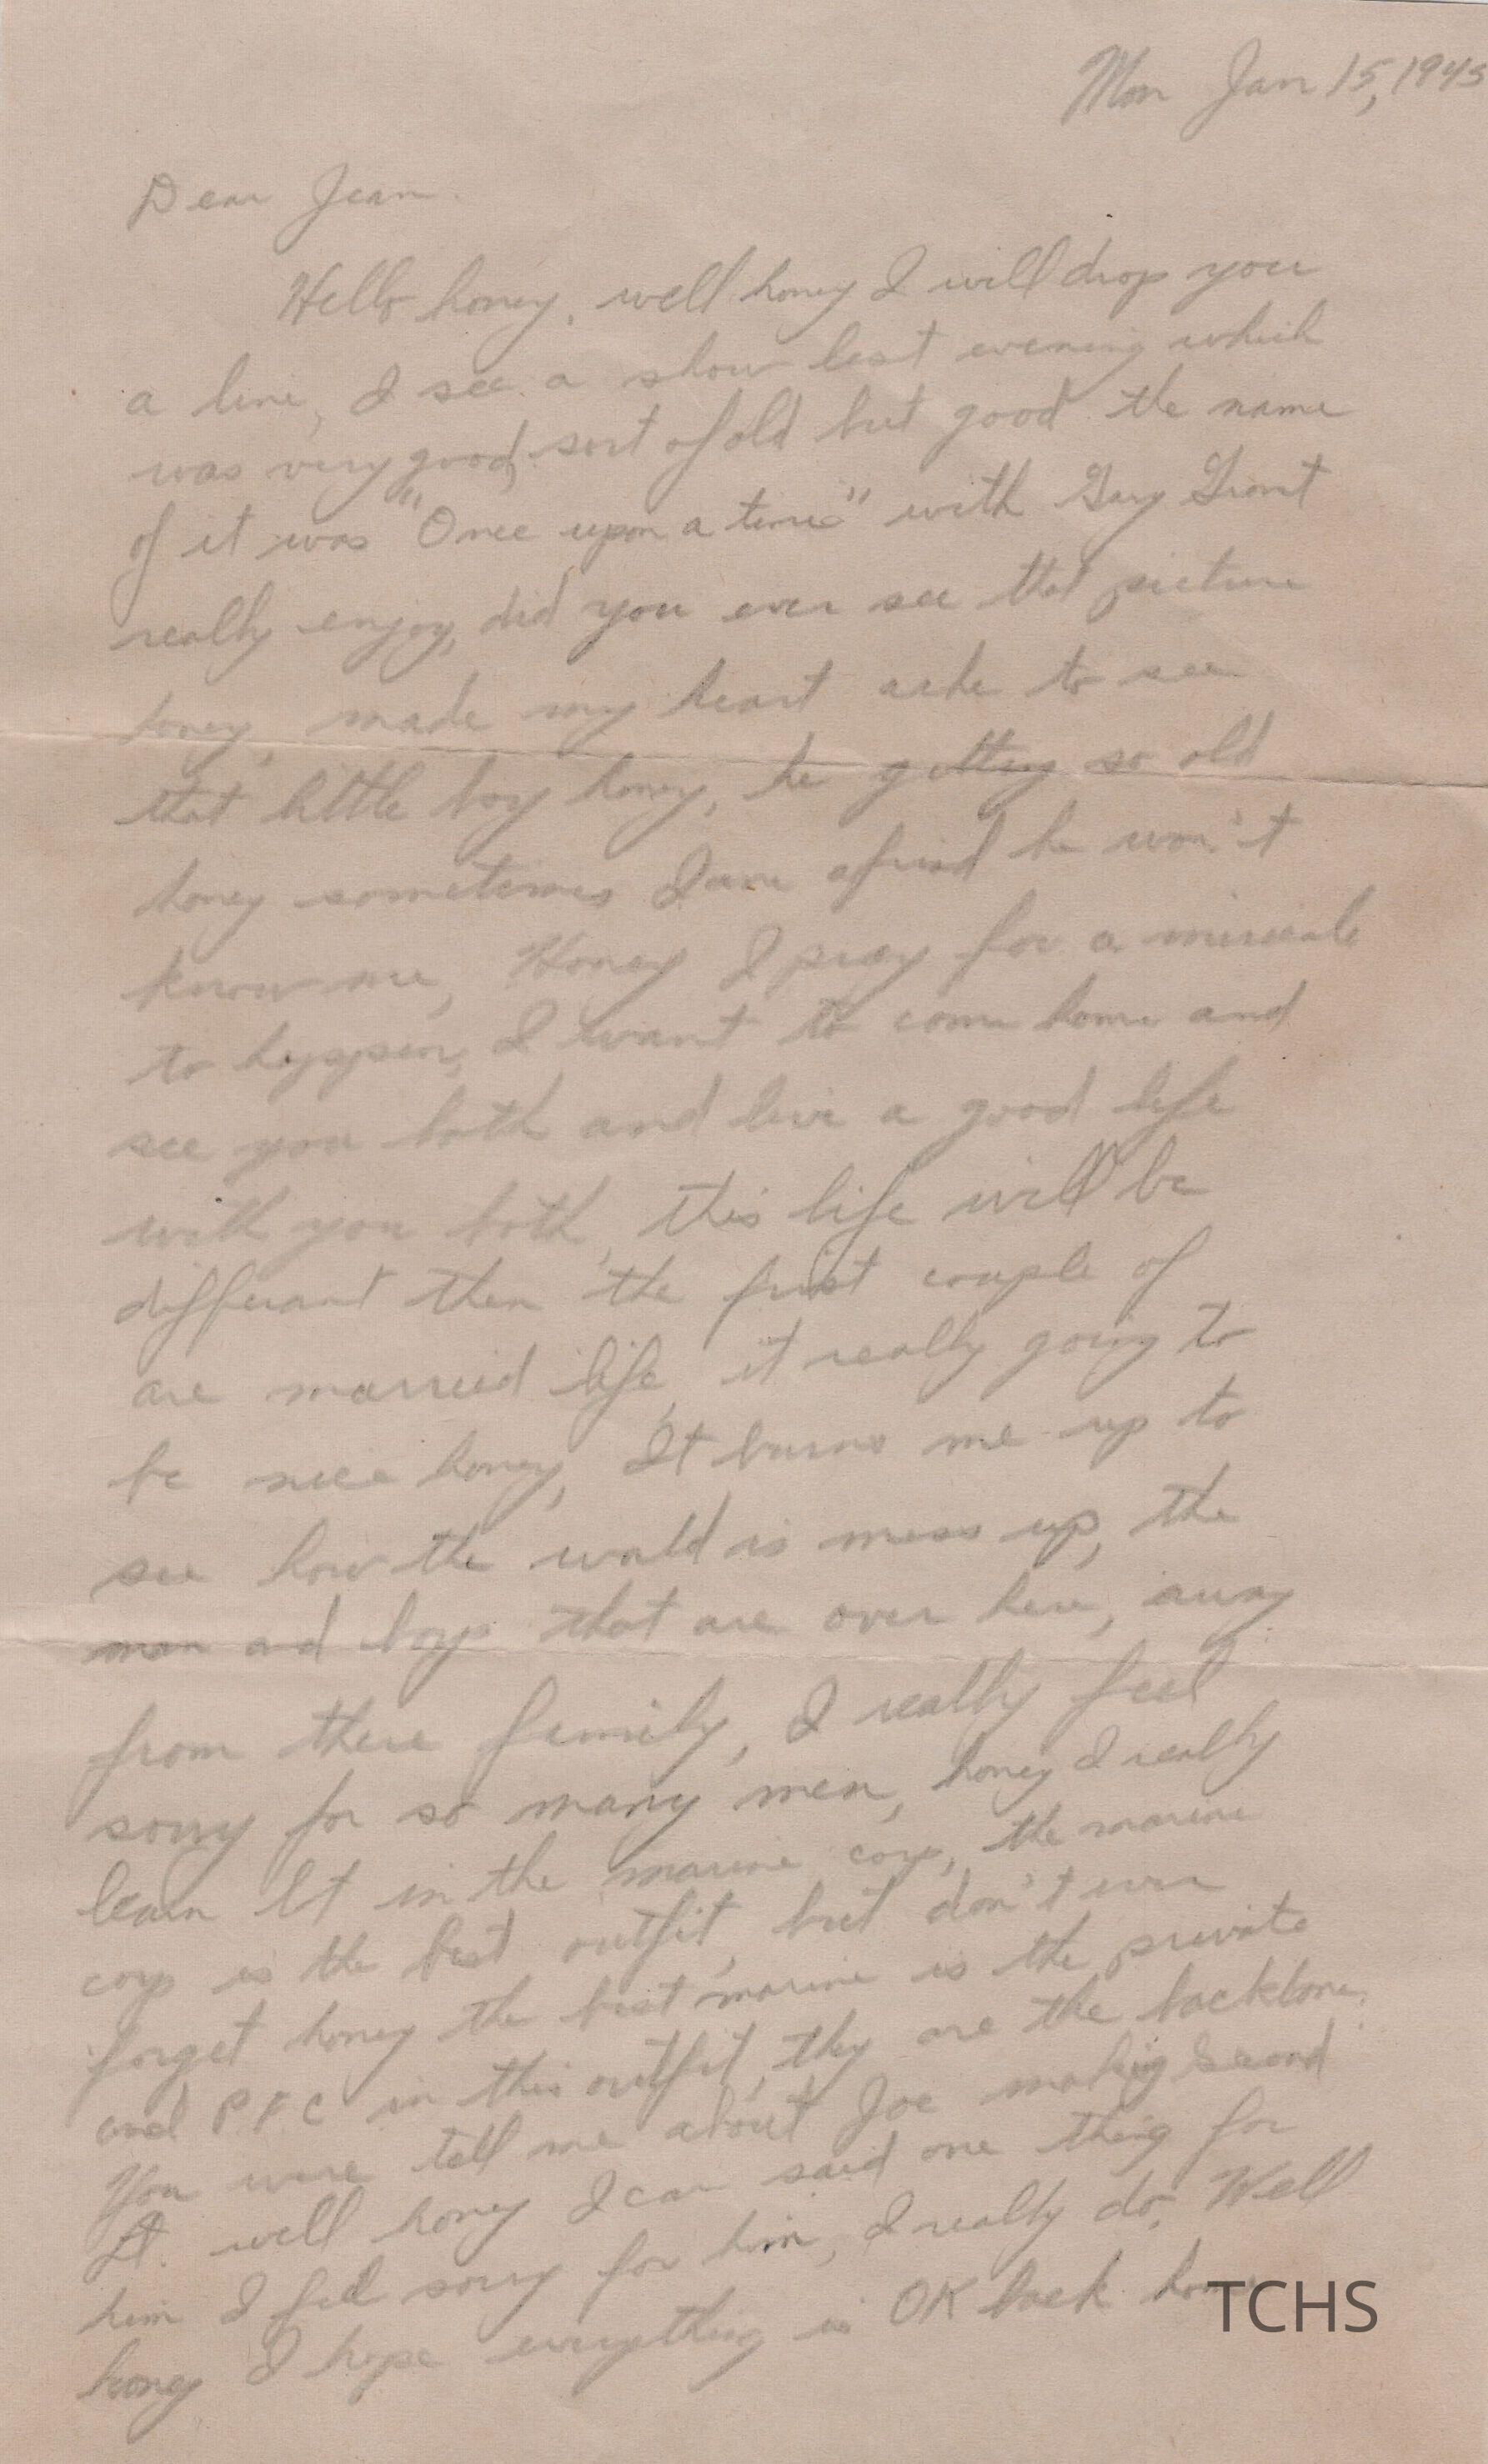 Mon Jan 15, 1945
Dear Jean.
Hello honey, well honey I will drop you
a line, I see a show last evening which
was very good, sort of old but good the name
of it was "Once upon a time" with Gary Grant
really enjoy, did you ever see that picture
honey, made my heart ache to see
that little boy honey, he getting so old
honey sometimes I am afriad he won't
know me, Honey I pray for a miricale
to happen, I want to come home and
see you both and live a good life
with you both, this life will be
differant then the first couple of
are married life, it really going to
be nice honey, It burns me up to
see how the wold is mess up, the
man and boys that are over here, away
from there family, I really feel
sorry for so many men, honey I really
learn It in the marine corp, the marine
corp is the best outfit, but don't ever
forget honey the best marine is the private
and P F C in this outfit, they are the backbone.
You were tell me about Joe making Second
Lt. well honey I can said one thing for
him I feel sorry for him, I really do, Well
honey I hope everything is OK back home
TCHS